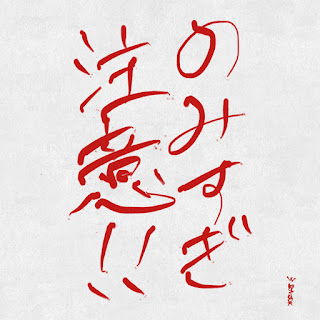 のみすぎ
注意!!